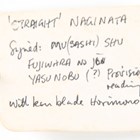 'STRAIGHT' NAGINATA
Signed: MU(SASHI) SHU
FUJIWARA NO JO
YASUNOBU (?) Provision
reading
With ken blade Horimono